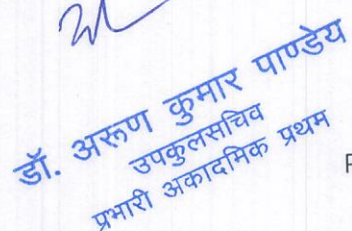 डॉ. अरूण कुमार पाण्डेय
उपकुलसचिव
प्रभारी अकादमिक प्रथम
P